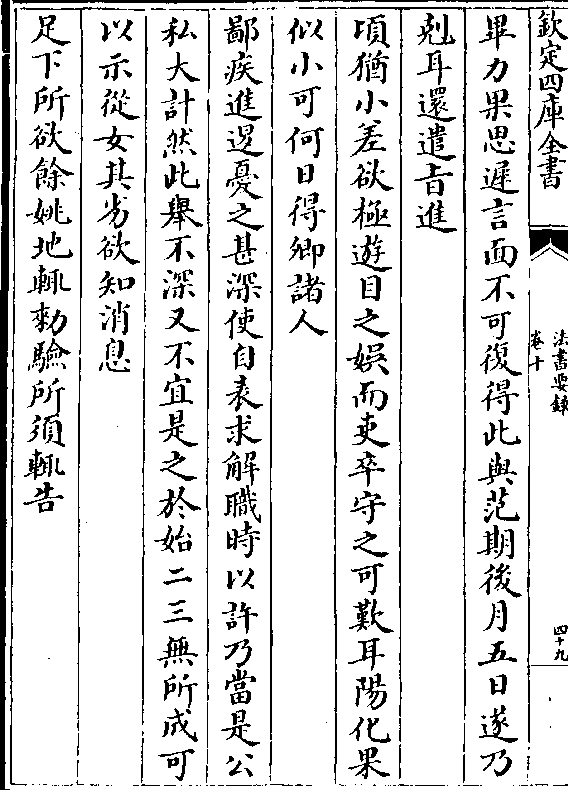 欽定四庫全書
法書要錄
卷十
四十九
畢力果思遲言面不可復得此與范期後月五日遂乃
剋耳還遣旨進
頃猶小差欲極遊目之娱而吏卒守之可歎耳陽化果
似小可何日得卿諸人
鄙疾進退憂之甚深使自表求解職時以許乃當是公
私大計然此舉不深又不宜是之於始二三無所成可
以示從女其劣欲知消息
足下所欲餘姚地輒勑驗所須輒告